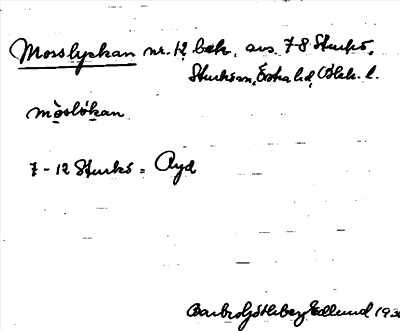 Mosslyckan nr. 12 bek. avs. 7-8 Sturkö,
Sturkö sn, Östra hd, Blek. l.
mòslókan
7-12 Sturkö = Ayd
Barbro Götheberg Edlund 193